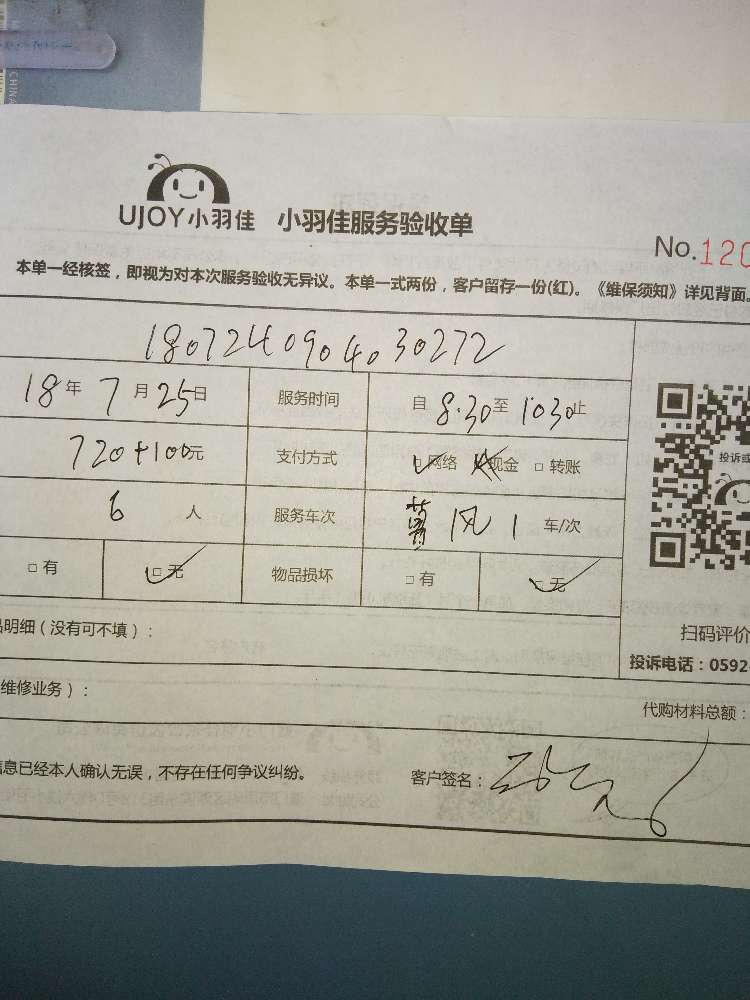 CHINA
UJOY小羽佳 小羽佳服务验收单
No.120
本单一经核签，即视为对本次服务验收无异议。本单一式两份，客户留存一份(红)。《维保须知》详见背面。
1807240904030272
18年7月25日 服务时间 自8:30至1030止
720+100元 支付方式 □网络 □现金 □转账
6人 服务车次 风1车/次
□有 □无 物品损坏 □有 □无
投诉或
扫码评价
品明细（没有可不填）：
投诉电话：0592
维修业务）：
代购材料总额：
信息已经本人确认无误，不存在任何争议纠纷。 客户签名：